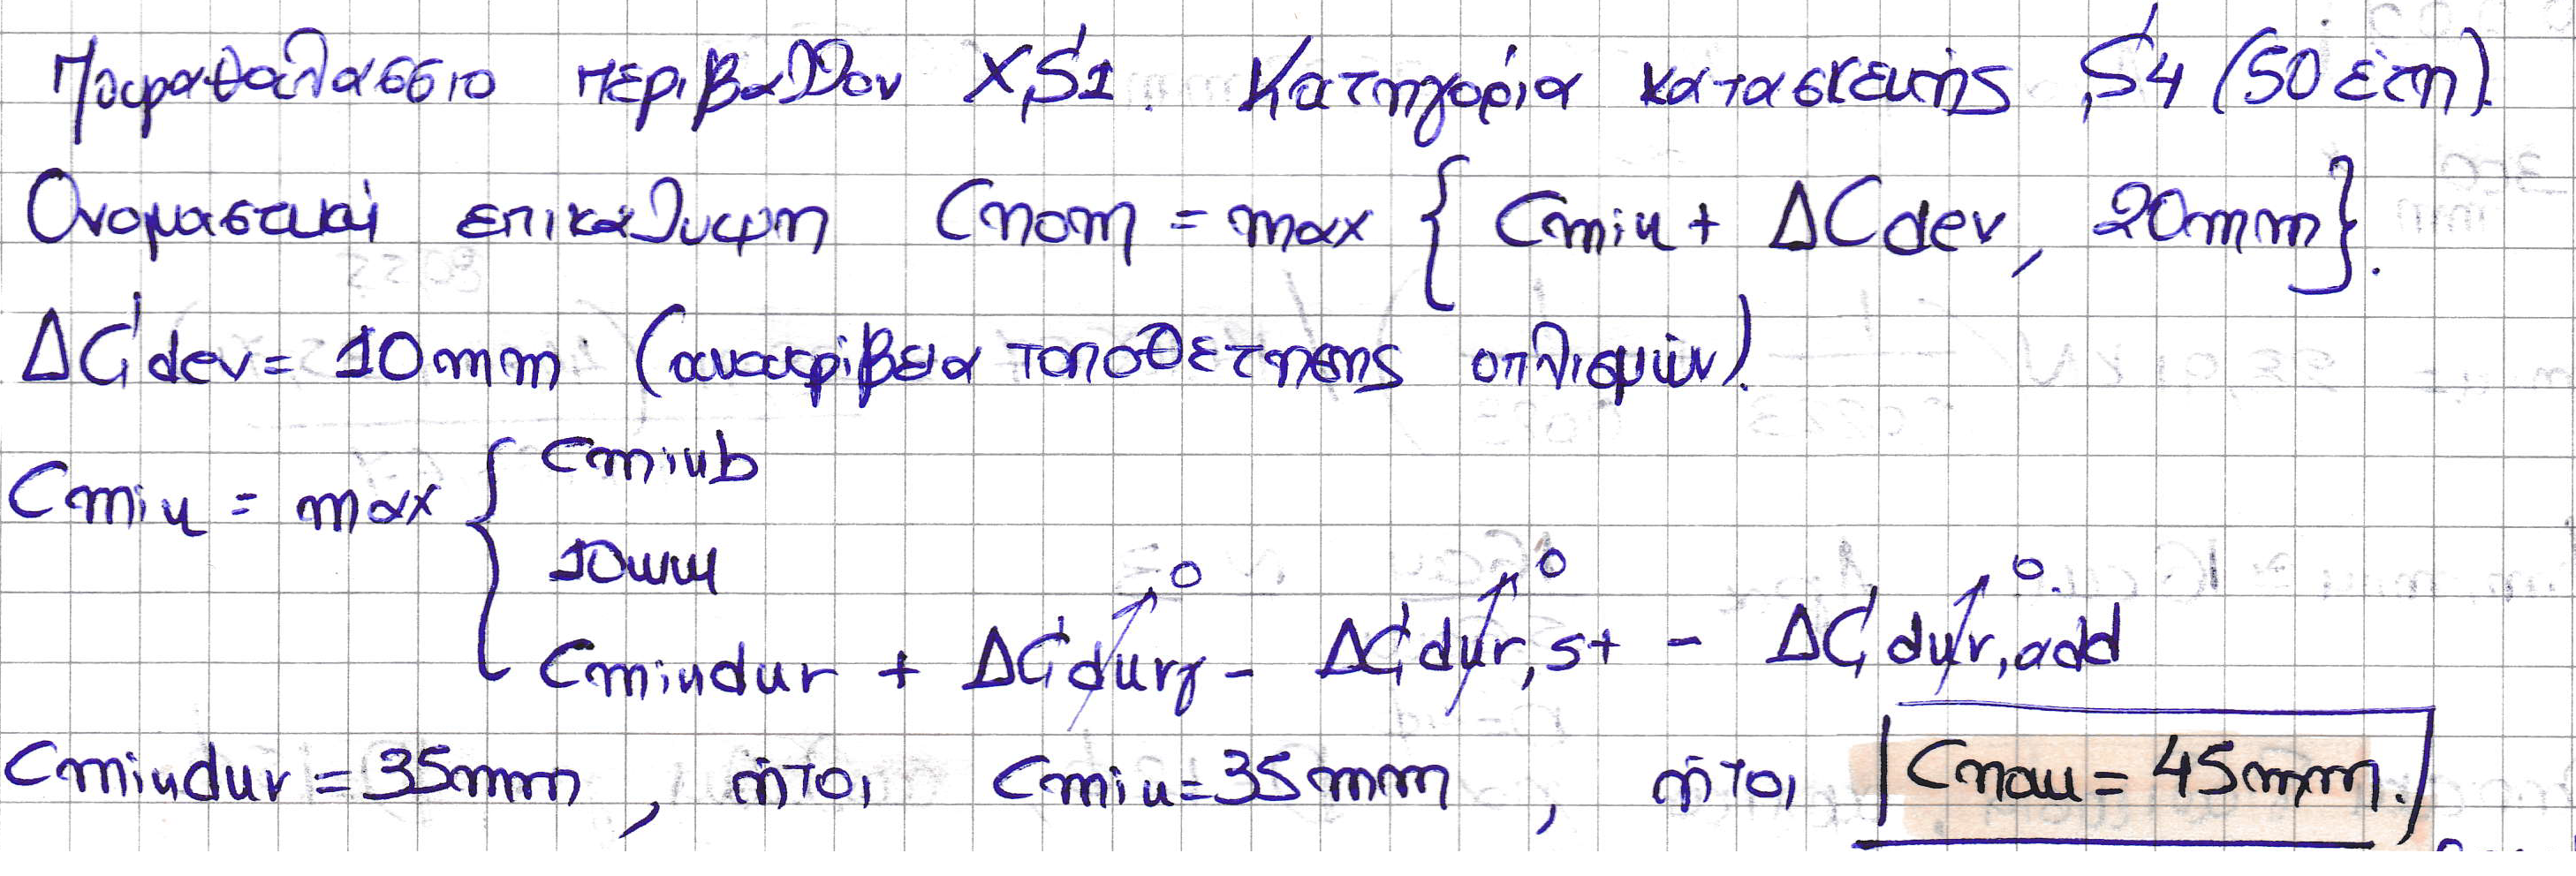 Παραθαλάσσιο περιβάλλον XS1. Κατηγορία κατασκευής S4 (50 έτη).
Ονομαστική επικάλυψη Cnom = max { Cmin + ΔCdev, 20mm }.
ΔCdev = 10mm (ανακρίβεια τοποθέτησης οπλισμών).
Cmin = max { Cminb
10mm
Cmindur + ΔCdurγ - ΔCdur,st - ΔCdur,add
0 0 0
Cmindur = 35mm, ήτοι Cmin = 35mm, ήτοι Cnom = 45mm.